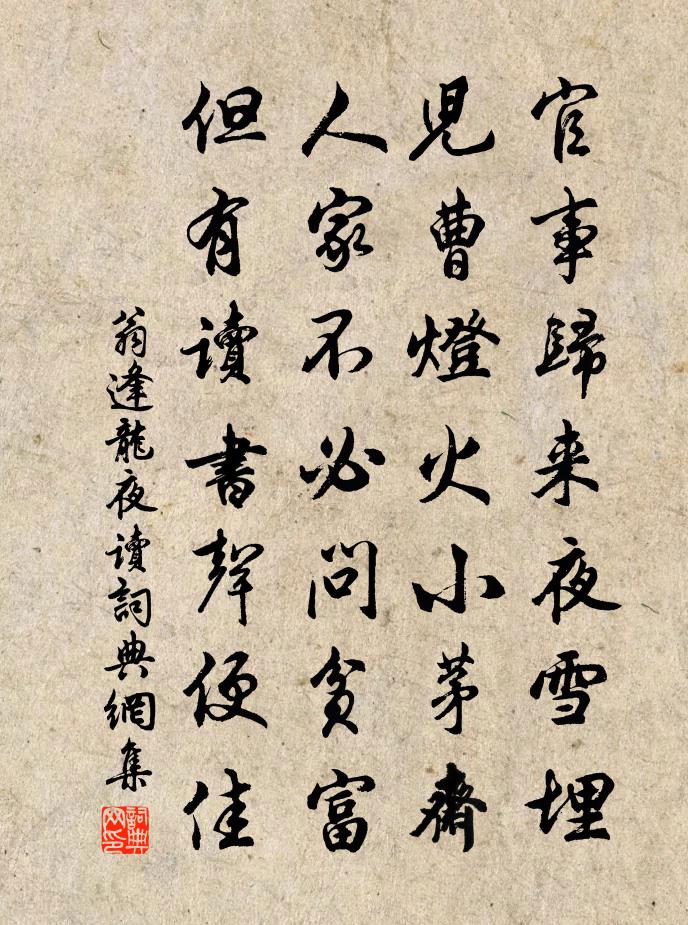 官事歸来夜雪埋
児曹燈火小茅齋
人家不必問貧富
但有讀書聲便佳
翁逢龍夜讀詞典網集
詞典网印